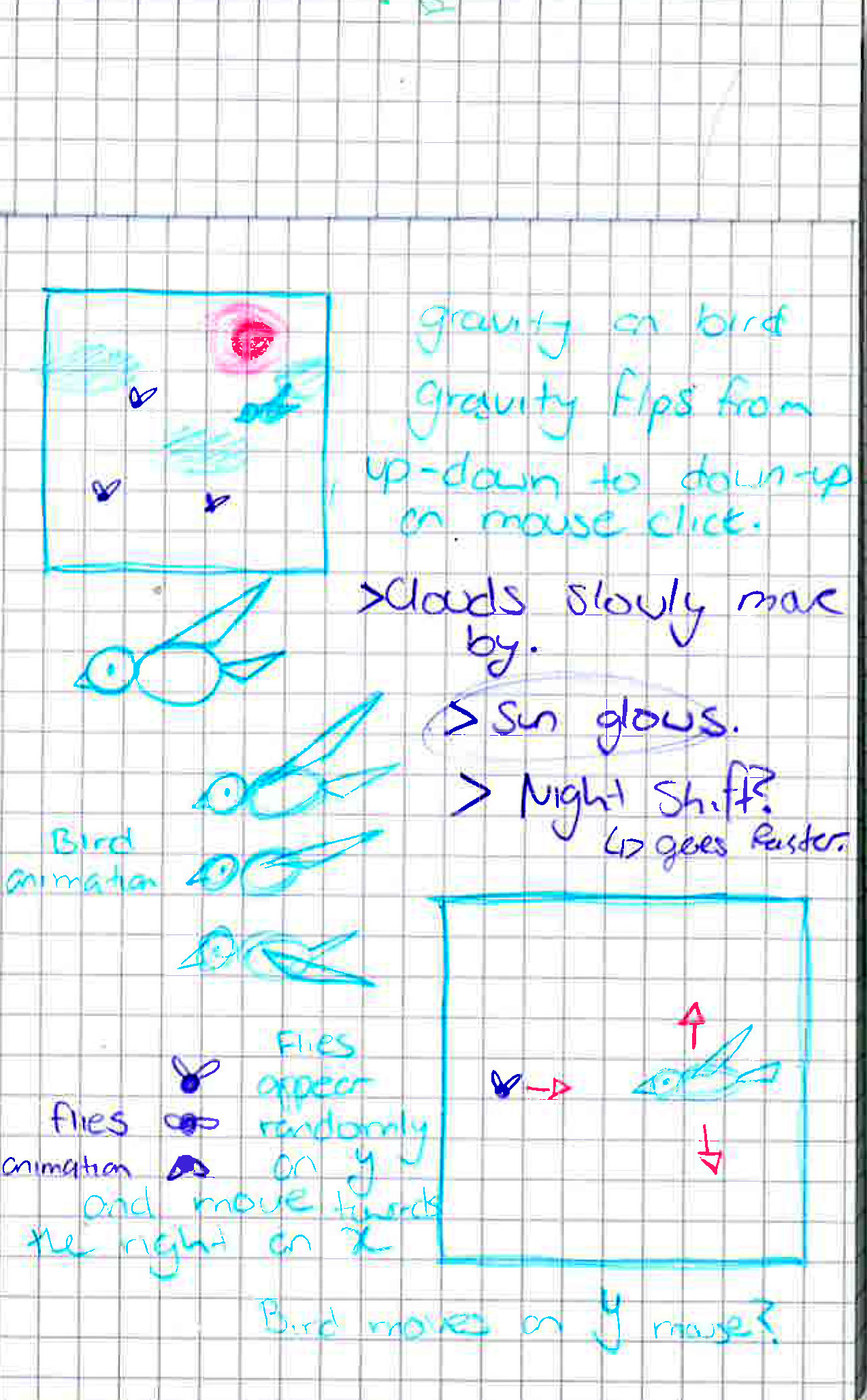 gravity on bird
gravity flps from
up-down to down-up
on mouse click.
>Clouds slowly move
by.
> Sun glows.
> Night Shift?
↳ goes faster.
Bird
animation
Flies
appear
randomly
on y
and move towards
the right on x
flies
animation
Bird moves on y mouse?